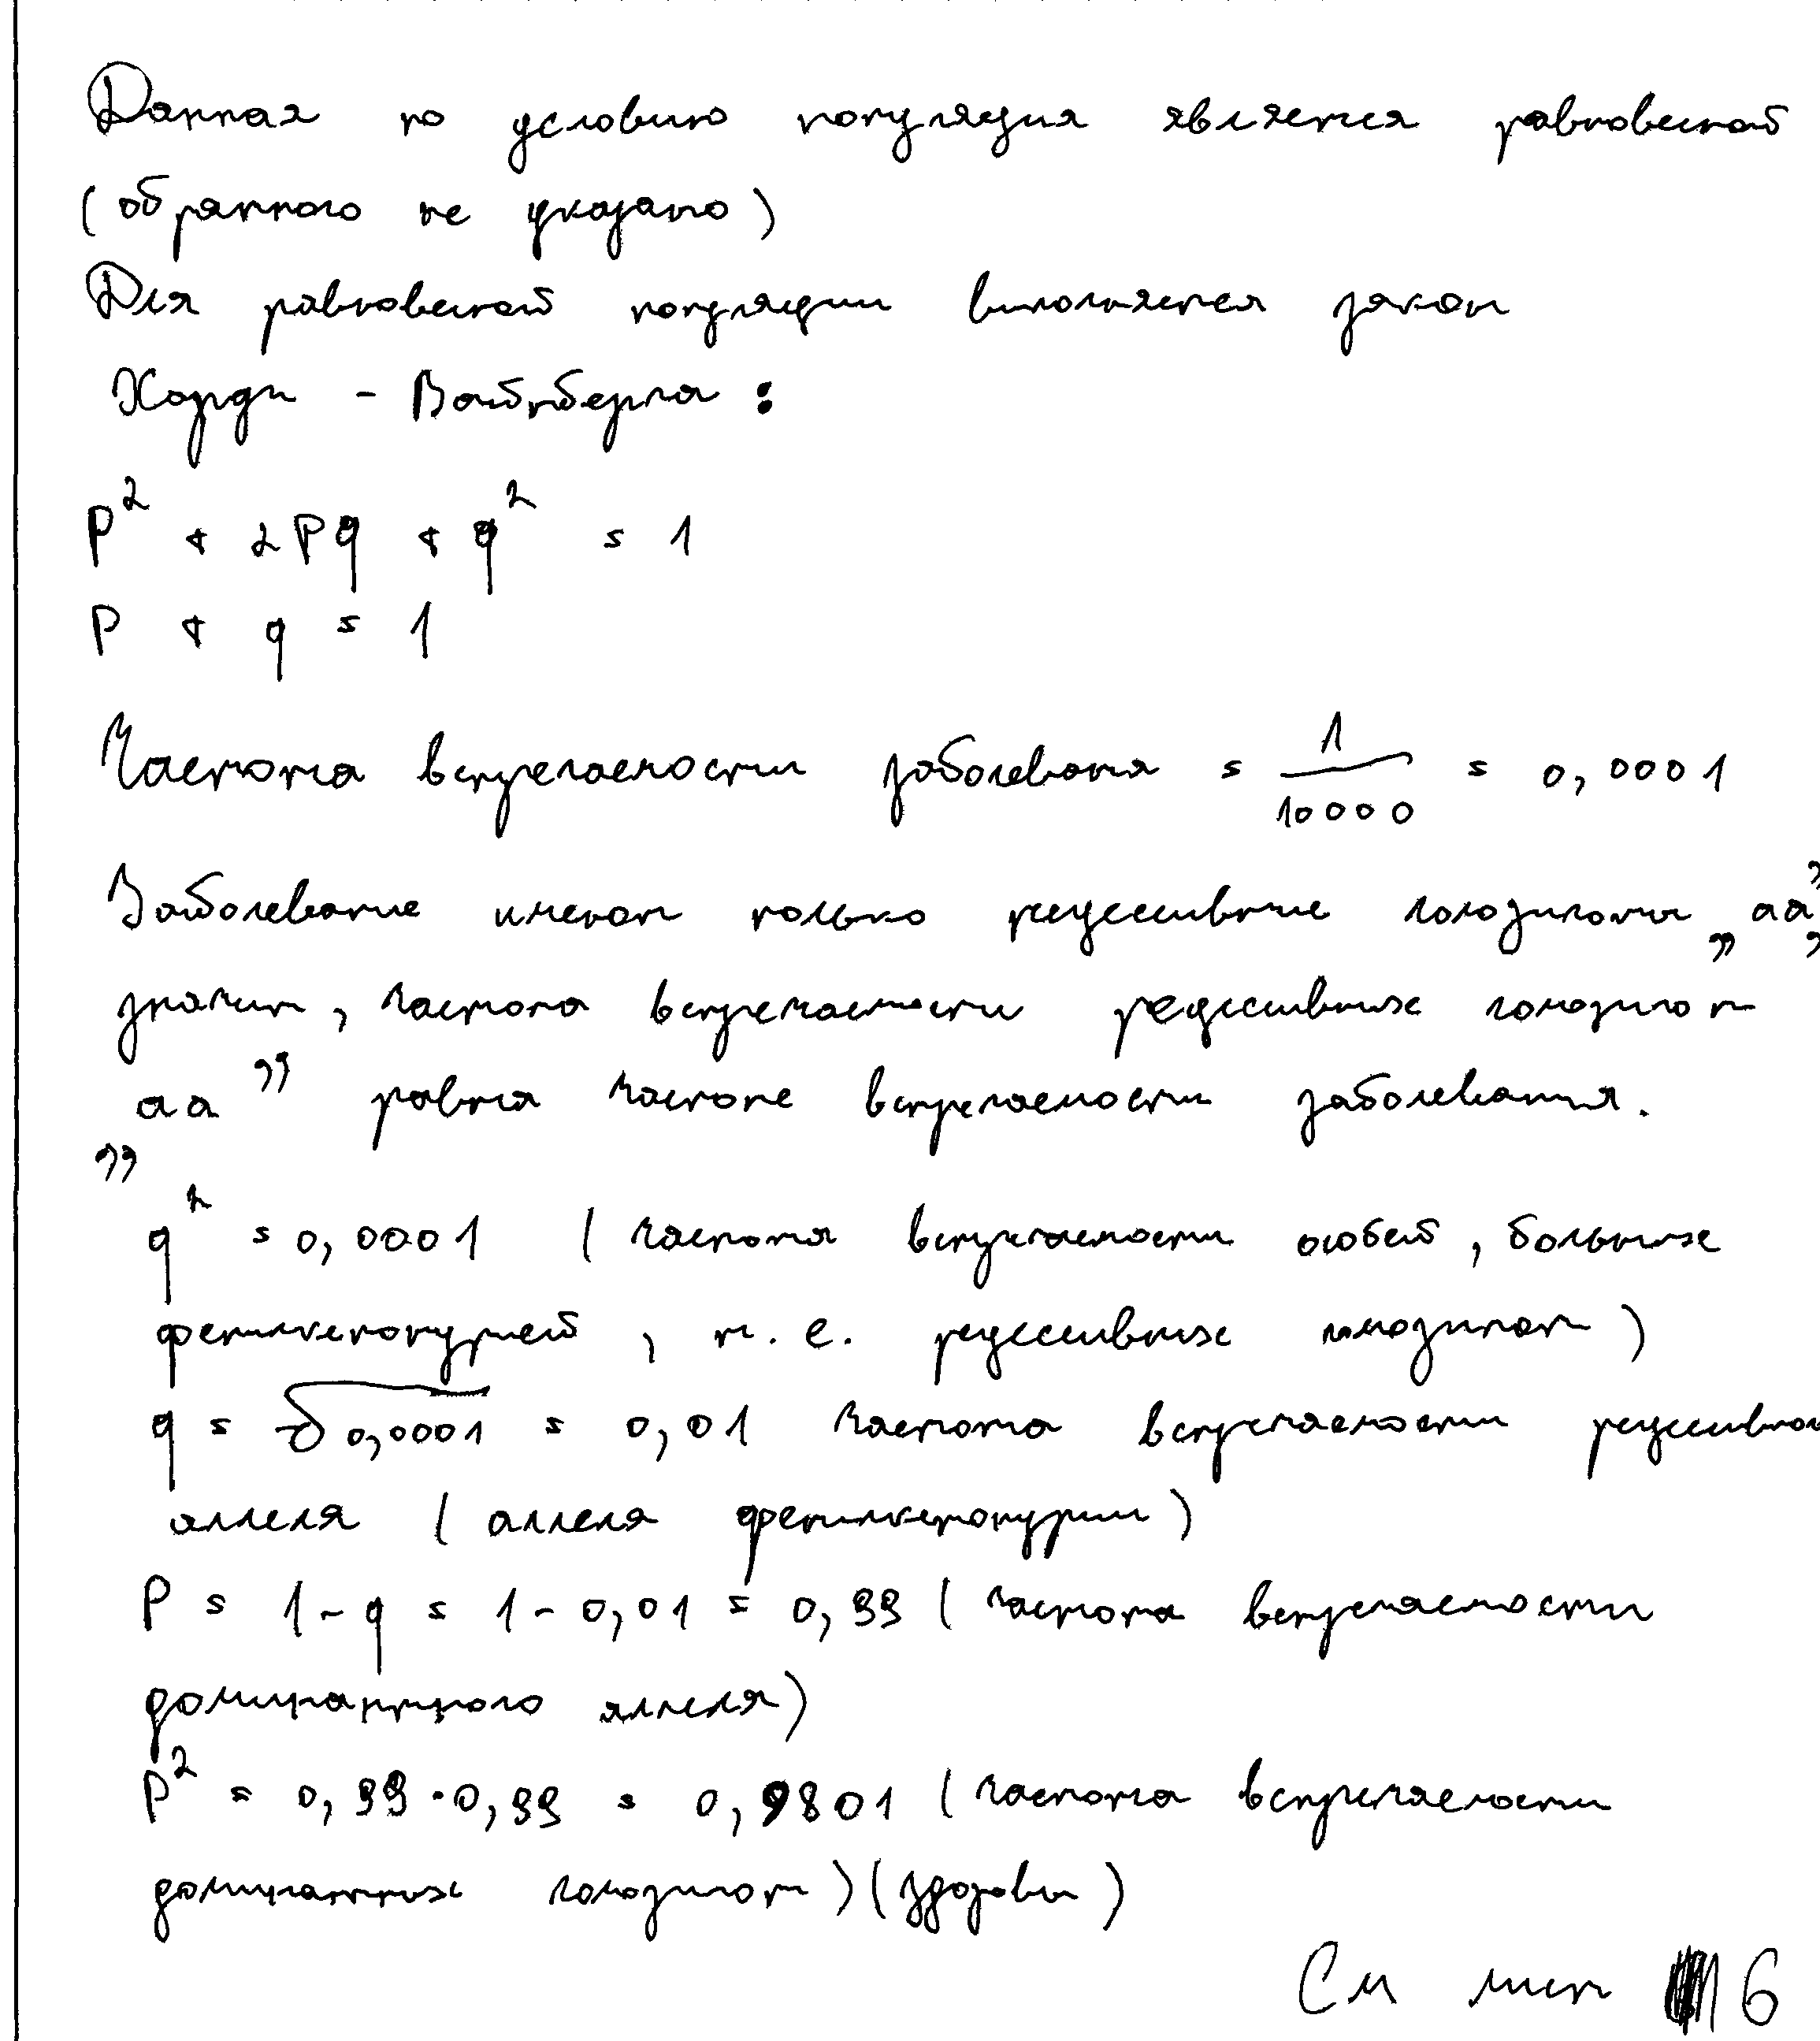 Данная по условию популяция является равновесной
(обратного не указано)
Для равновесной популяции выполняется закон
Харди - Вайнберга :
P² + 2Pq + q² = 1
P + q = 1
Частота встречаемости заболевания = 1/10000 = 0,0001
Заболевание имеют только рецессивные гомозиготы „аа”,
значит, частота встречаемости рецессивных гомозигот
„аа” равна частоте встречаемости заболевания.
q² = 0,0001 (частота встречаемости особей, больных
фенилкетонурией, т. е. рецессивных гомозигот)
q = √0,0001 = 0,01 частота встречаемости рецессивного
аллеля (аллеля фенилкетонурии)
P = 1 - q = 1 - 0,01 = 0,99 (частота встречаемости
доминантного аллеля)
P² = 0,99 · 0,99 = 0,9801 (частота встречаемости
доминантных гомозигот) (здоровы)
См лист 6